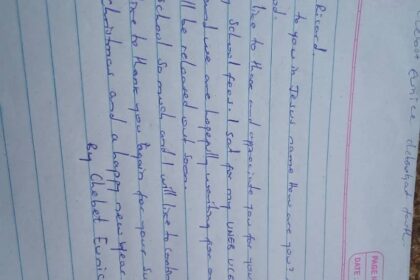 PAGE N
DATE
Ricard
to you in Jesus name How are you?
od.
like to thank and appreciate you for you
School fees. I sat for my UNEB UCE
and we are hopefully waiting for our
ll be released out soon
School so much and I will like to
like to thank you again for your su
Christmas and a happy new year
By Chebet Eunic